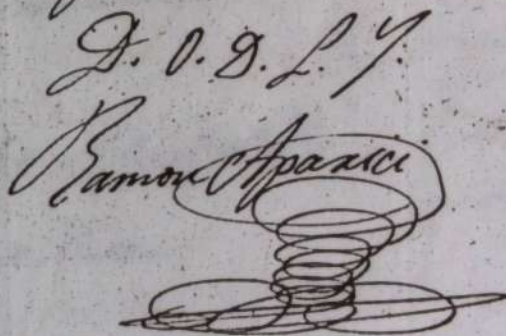 D. O. D. L. Y.
Ramon Aparici